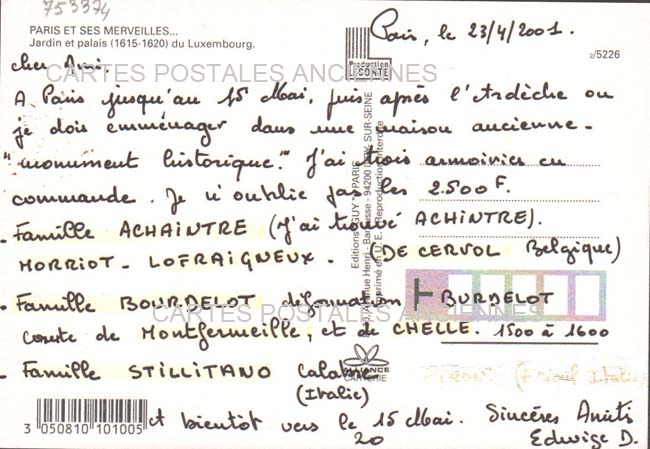 753374
PARIS ET SES MERVEILLES...
Jardin et palais (1615-1620) du Luxembourg.
Production
LECONTE
Paris, le 23/4/2001.
2/5226
cher Ami,
CARTES POSTALES ANCIENNES
A Paris jusqu'au 15 Mai, puis après l'Ardèche ou
je dois emménager dans une maison ancienne -
"monument historique." J'ai trois armoiries en
commande. Je n'oublie pas les 2.500 F.
- Famille ACHAINTRE (J'ai trouvé ACHINTRE).
MORRIOT - LOFRAIGNEUX - (DE CERVOL Belgique)
- Famille BOURDELOT déformation BURDELOT
CARTES POSTALES ANCIENNES
comte de Montfermeille, et de CHELLE. 1500 à 1600
- Famille STILLITANO Calabre
(Italie)
CARTERIE
(Frioul Italie)
et bientôt vers le 15 Mai. Sincères Amitiés
20
Edwige D.
3 050810 101005
Editions "GUY" PARIS
94200 IVRY-SUR-SEINE
Imprimé en U.E. Reproduction interdite